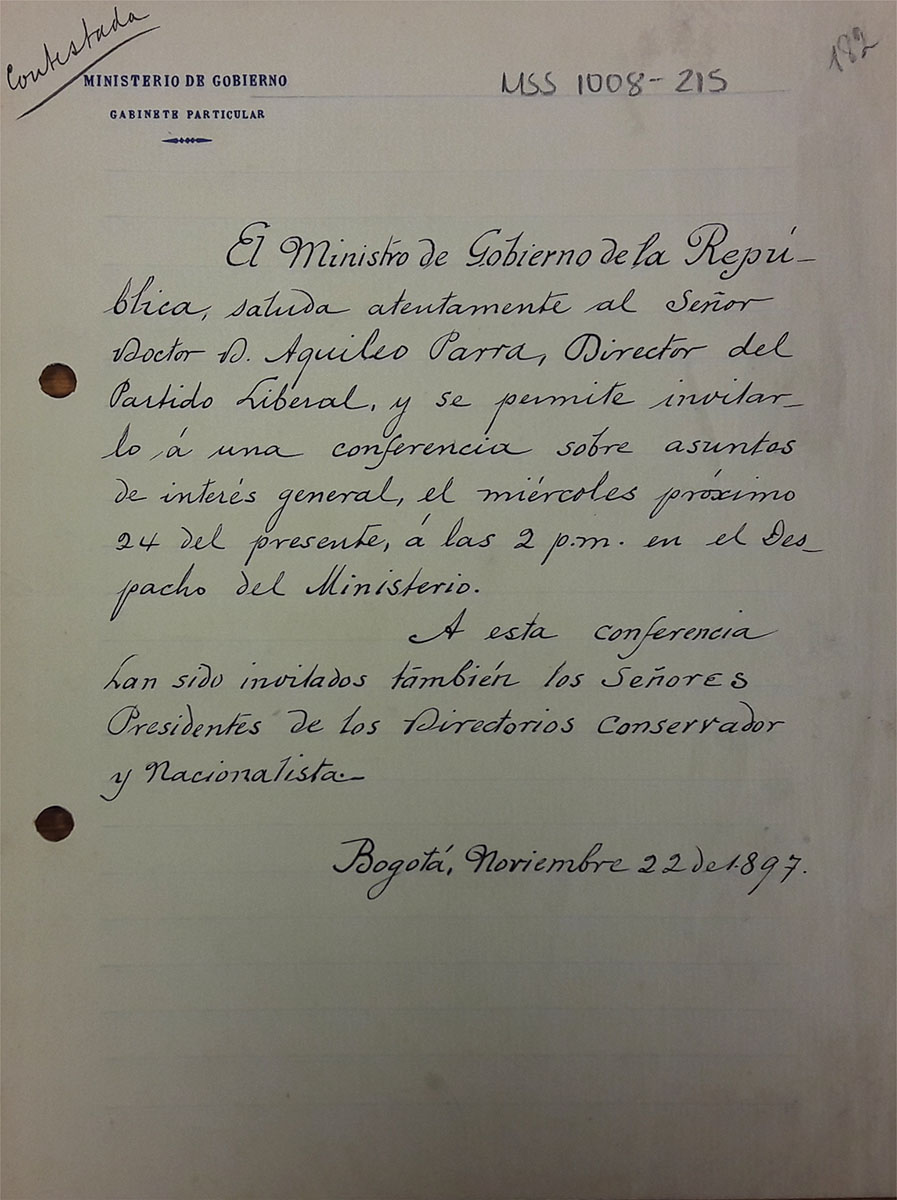 Contestada
182
MINISTERIO DE GOBIERNO
MSS 1008-215
GABINETE PARTICULAR
El Ministro de Gobierno de la Repú-
blica, saluda atentamente al Señor
Doctor D. Aquileo Parra, Director del
Partido Liberal, y se permite invitar-
lo á una conferencia sobre asuntos
de interés general, el miércoles próximo
24 del presente, á las 2 p.m. en el Des-
pacho del Ministerio.
A esta conferencia
han sido invitados también los Señores
Presidentes de los Directorios Conservador
y Nacionalista.-
Bogotá, Noviembre 22 de 1.897.